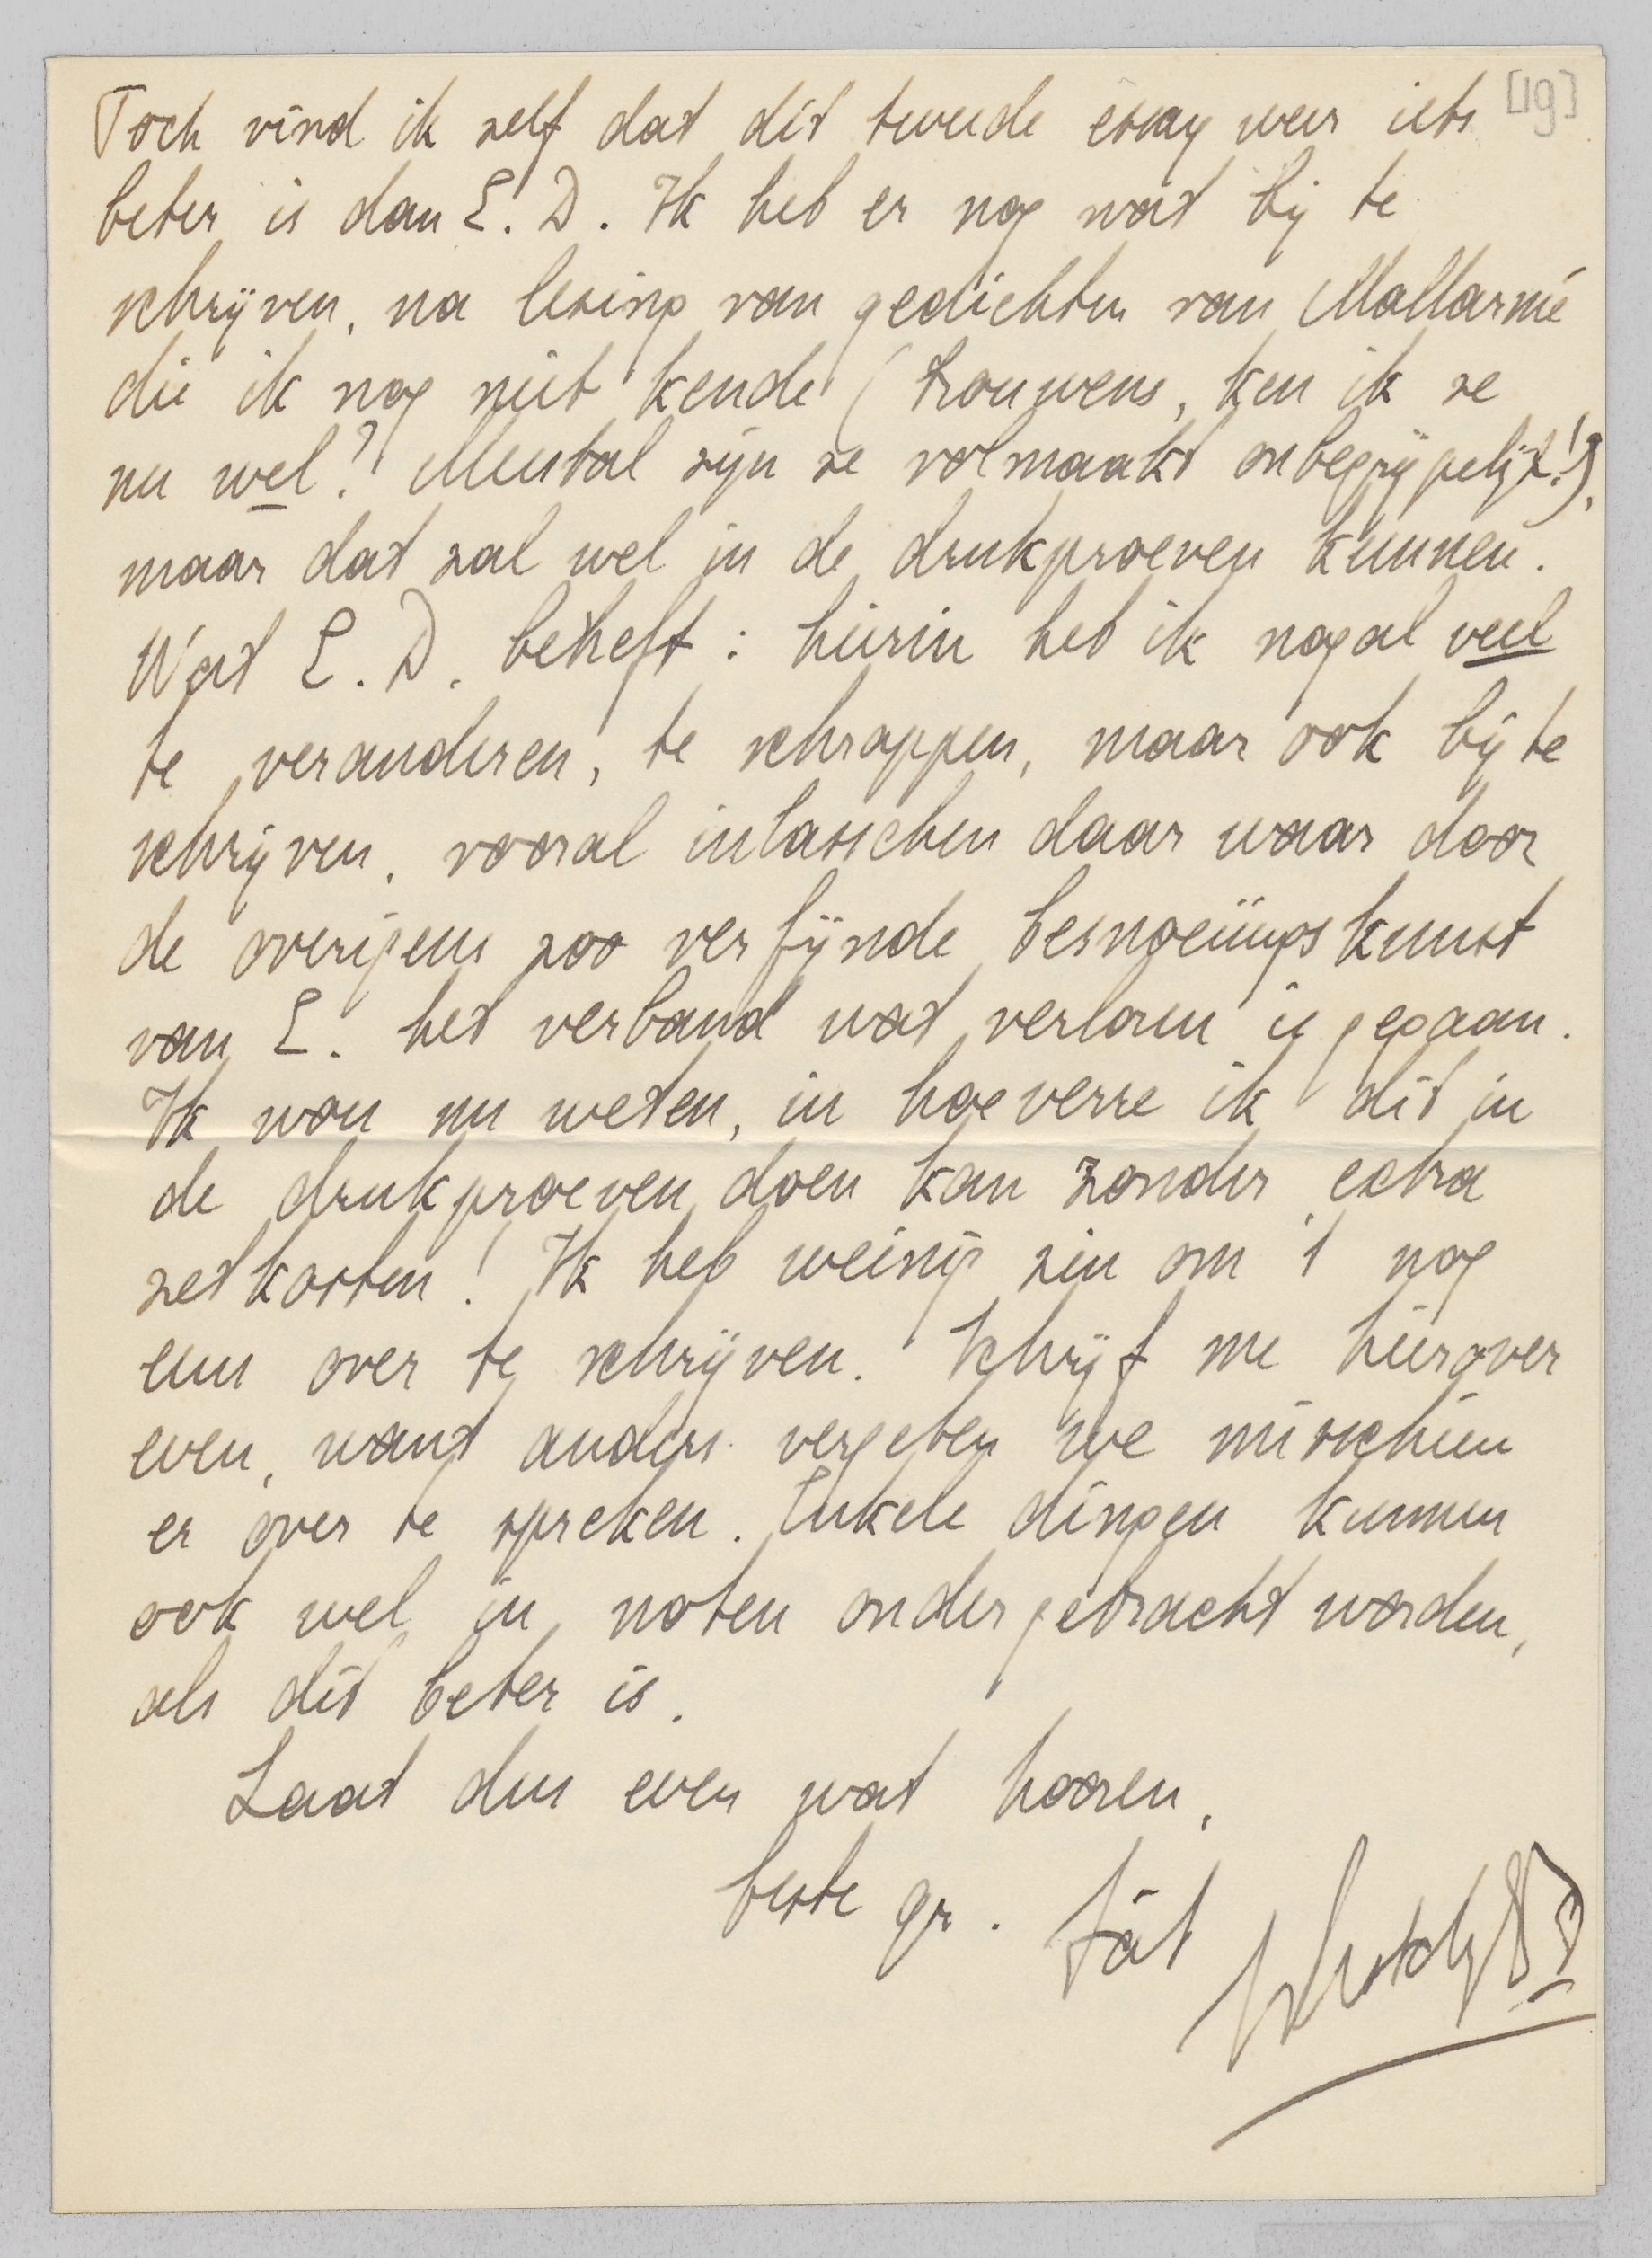 Toch vind ik zelf dat dit tweede essay weer iets [19]
beter is dan E. D. Ik heb er nog wat bij te
schrijven, na lezing van gedichten van Mallarmé
die ik nog niet kende (trouwens, ken ik ze
nu wel? Meestal zijn ze volmaakt onbegrijpelijk!),
maar dat zal wel in de drukproeven kunnen.
Wat E. D. betreft: hierin heb ik nogal veel
te veranderen, te schrappen, maar ook bij te
schrijven, vooral inlasschen daar waar door
de overigens zoo verfijnde besnoeiingskunst
van E. het verband wat verloren is gegaan.
Ik wou nu weten, in hoeverre ik dit in
de drukproeven doen kan zonder extra
zetkosten! Ik heb weinig zin om 't nog
eens over te schrijven. Schrijf me hierover
even, want anders vergeten we misschien
er over te spreken. Enkele dingen kunnen
ook wel in noten ondergebracht worden,
als dit beter is.
Laat dus even wat hooren,
beste gr. tàt
SVestdijk